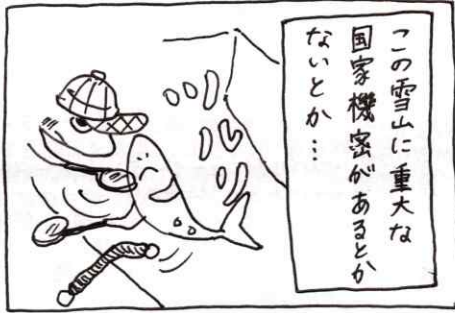 この雪山に重大な
国家機密があるとか
ないとか…
ツルリ